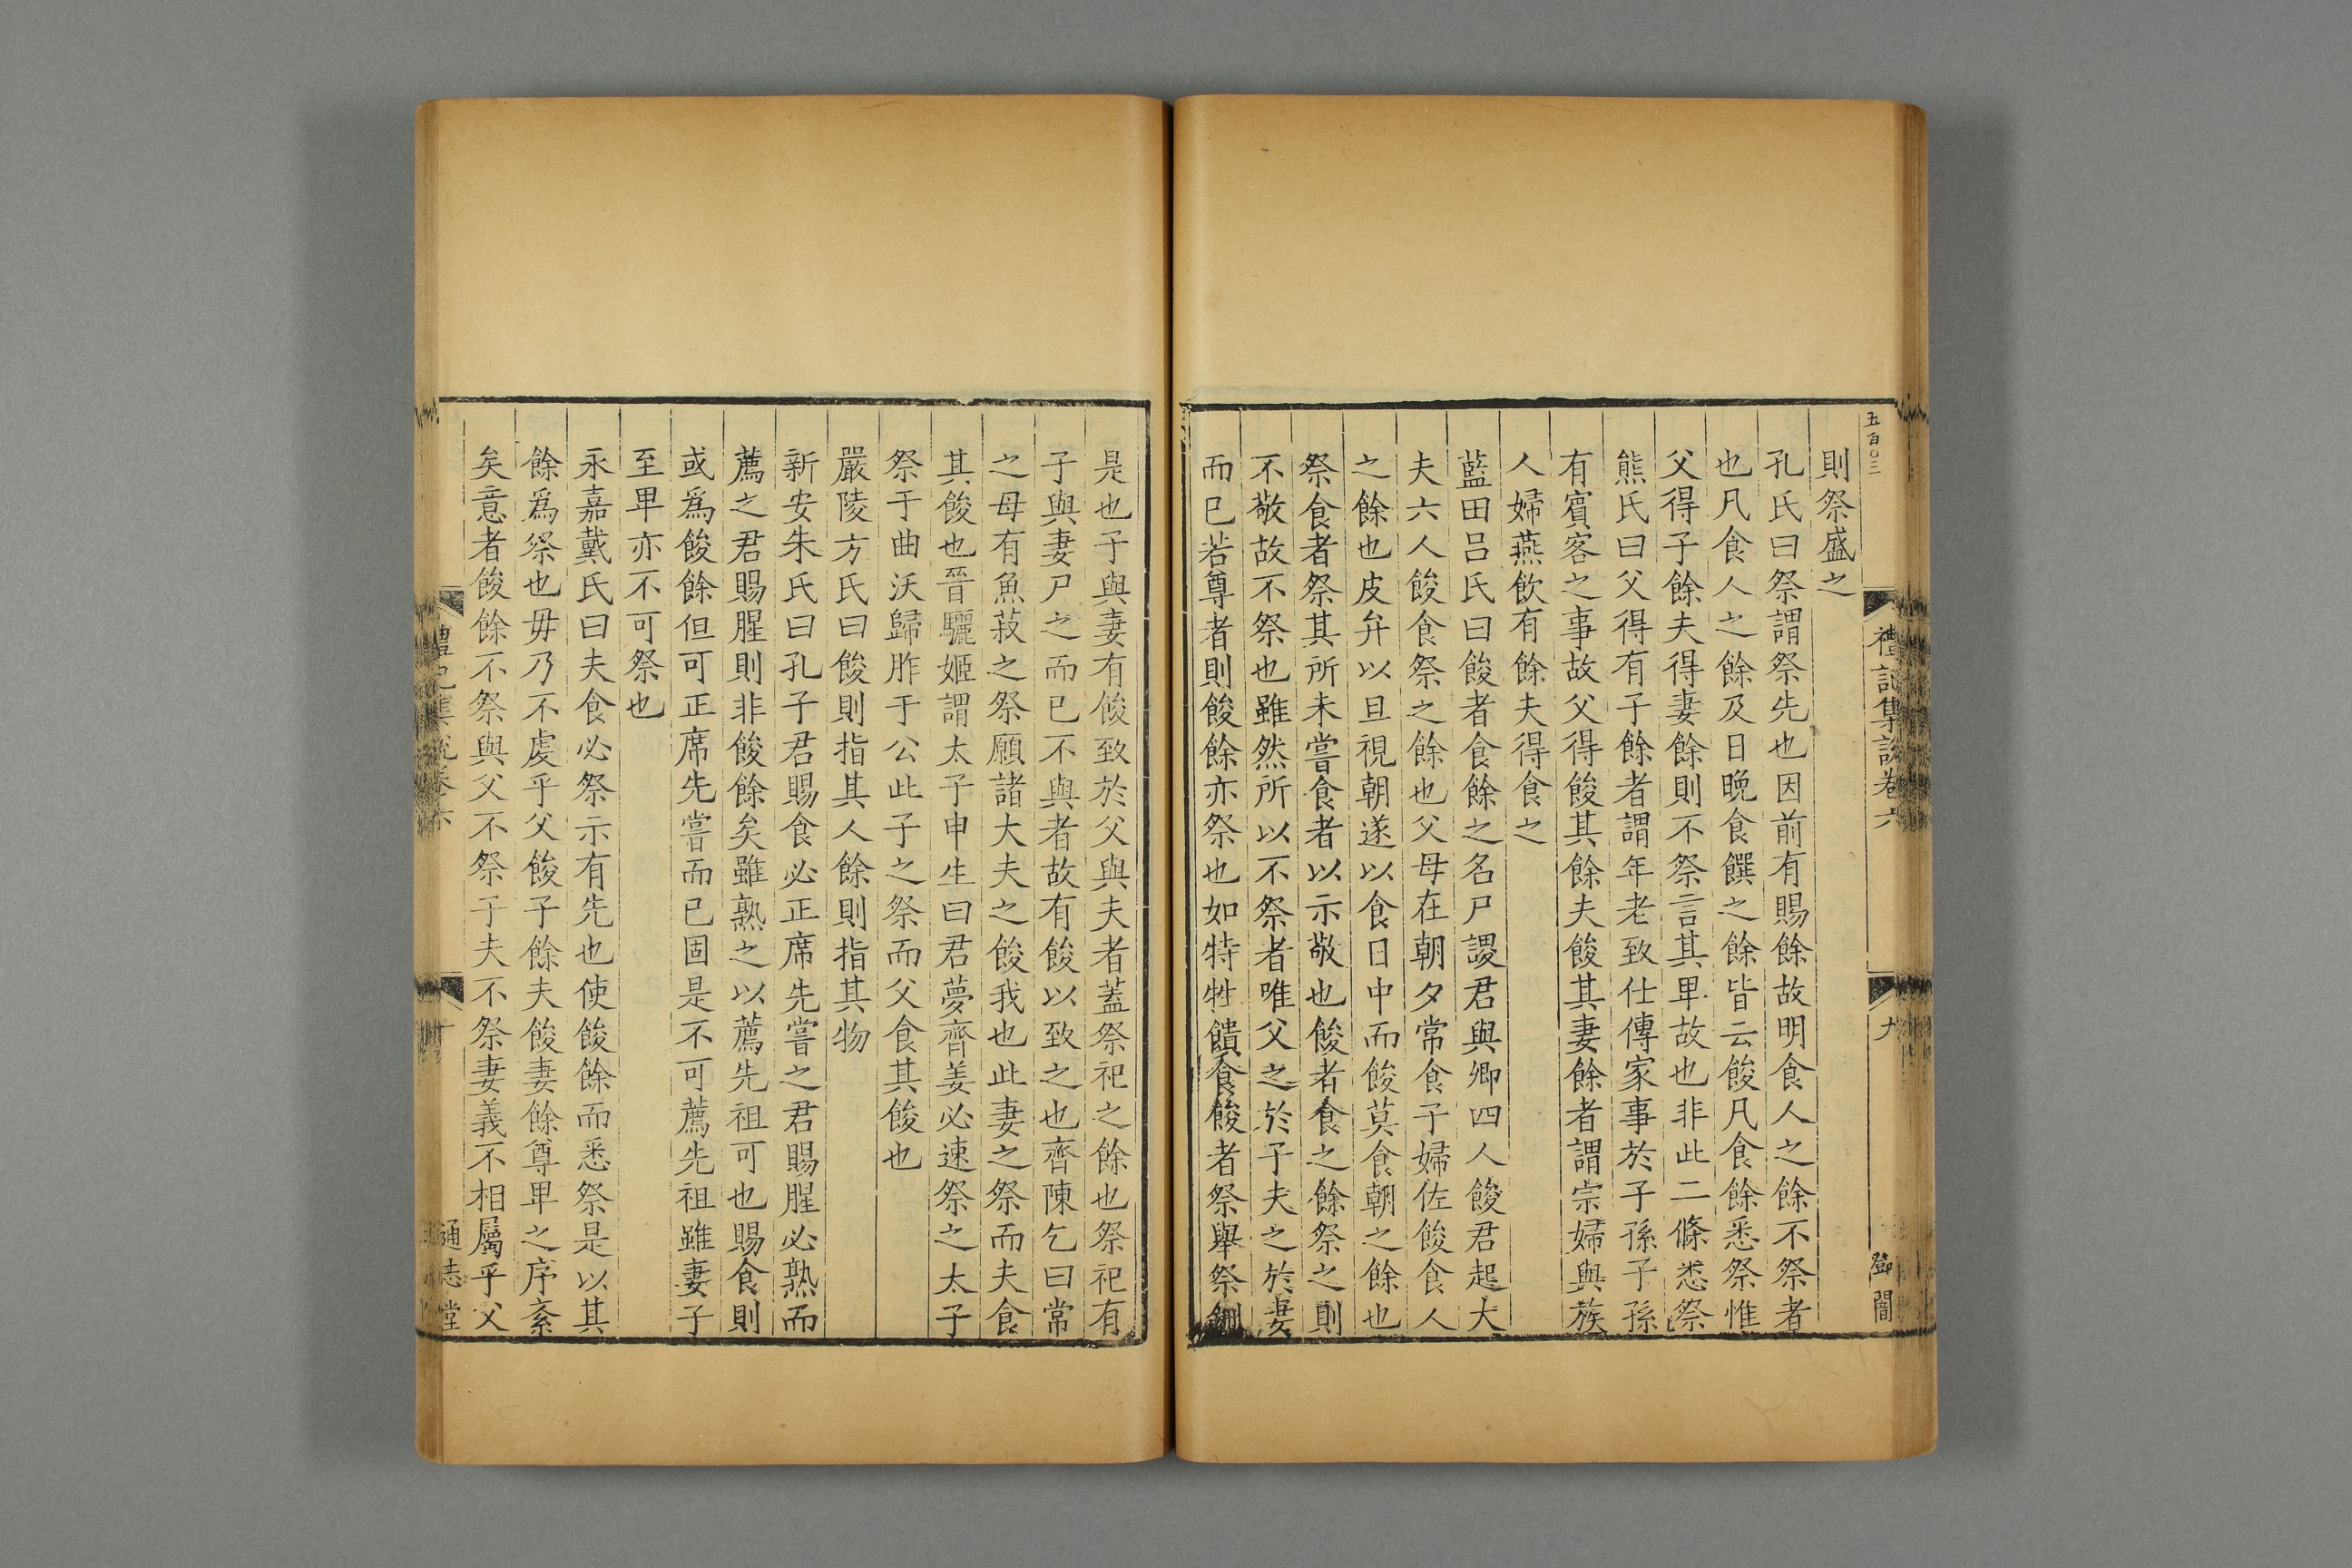 五百〇三
禮記集說卷六
九
鄧閶
則祭盛之
孔氏曰祭謂祭先也因前有賜餘故明食人之餘不祭者
也凡食人之餘及日晚食饌之餘皆云餕凡食餘悉祭惟
父得子餘夫得妻餘則不祭言其卑故也非此二條悉祭
熊氏曰父得有子餘者謂年老致仕傳家事於子孫子孫
有賓客之事故父得餕其餘夫餕其妻餘者謂宗婦與族
人婦燕飲有餘夫得食之
藍田吕氏曰餕者食餘之名尸謖君與卿四人餕君起大
夫六人餕食祭之餘也父母在朝夕常食子婦佐餕食人
之餘也皮弁以日視朝遂以食日中而餕莫食朝之餘也
祭食者祭其所未嘗食者以示敬也餕者食之餘祭之則
不敬故不祭也雖然所以不祭者唯父之於子夫之於妻
而已若尊者則餕餘亦祭也如特牲饋食餕者祭舉祭鉶
是也子與妻有餕致於父與夫者蓋祭祀之餘也祭祀有
子與妻尸之而已不與者故有餕以致之也齊陳乞曰常
之母有魚菽之祭願諸大夫之餕我也此妻之祭而夫食
其餕也晉驪姬謂太子申生曰君夢齊姜必速祭之太子
祭于曲沃歸胙于公此子之祭而父食其餕也
嚴陵方氏曰餕則指其人餘則指其物
新安朱氏曰孔子君賜食必正席先嘗之君賜腥必熟而
薦之君賜腥則非餕餘矣雖熟之以薦先祖可也賜食則
或爲餕餘但可正席先嘗而已固是不可薦先祖雖妻子
至卑亦不可祭也
永嘉戴氏曰夫食必祭示有先也使餕餘而悉祭是以其
餘爲祭也毋乃不虔乎父餕子餘夫餕妻餘尊卑之序紊
矣意者餕餘不祭與父不祭子夫不祭妻義不相屬乎父
禮記集說卷六
十
通志堂